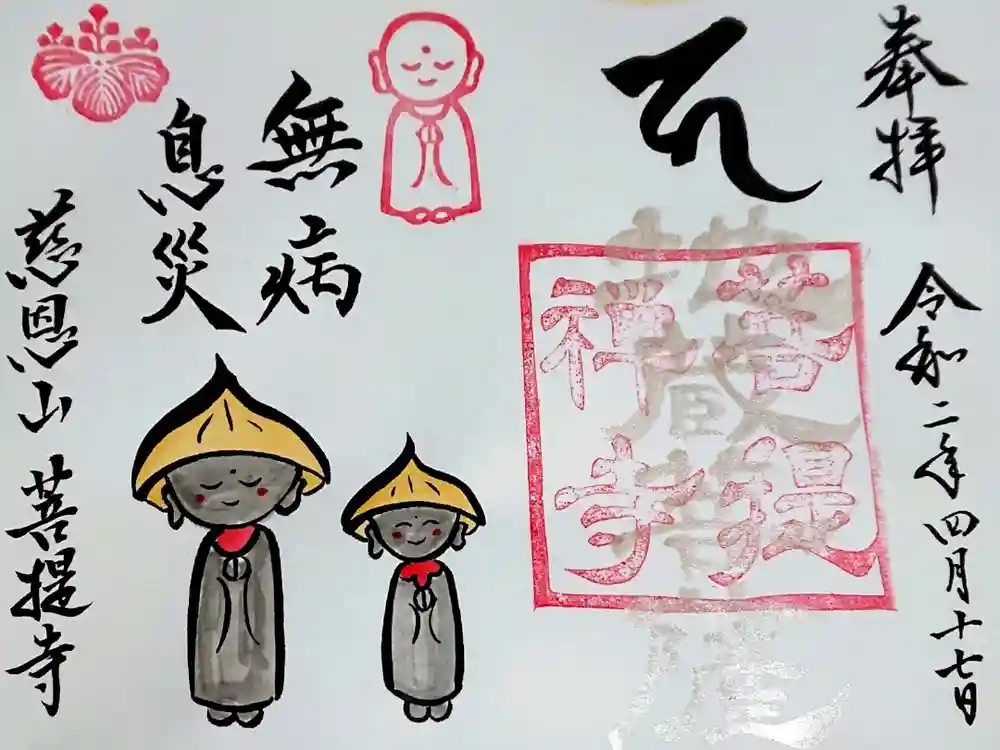 奉拝
令和二年四月十七日
地蔵菩薩
菩提
禅寺
無病
息災
慈恩山 菩提寺